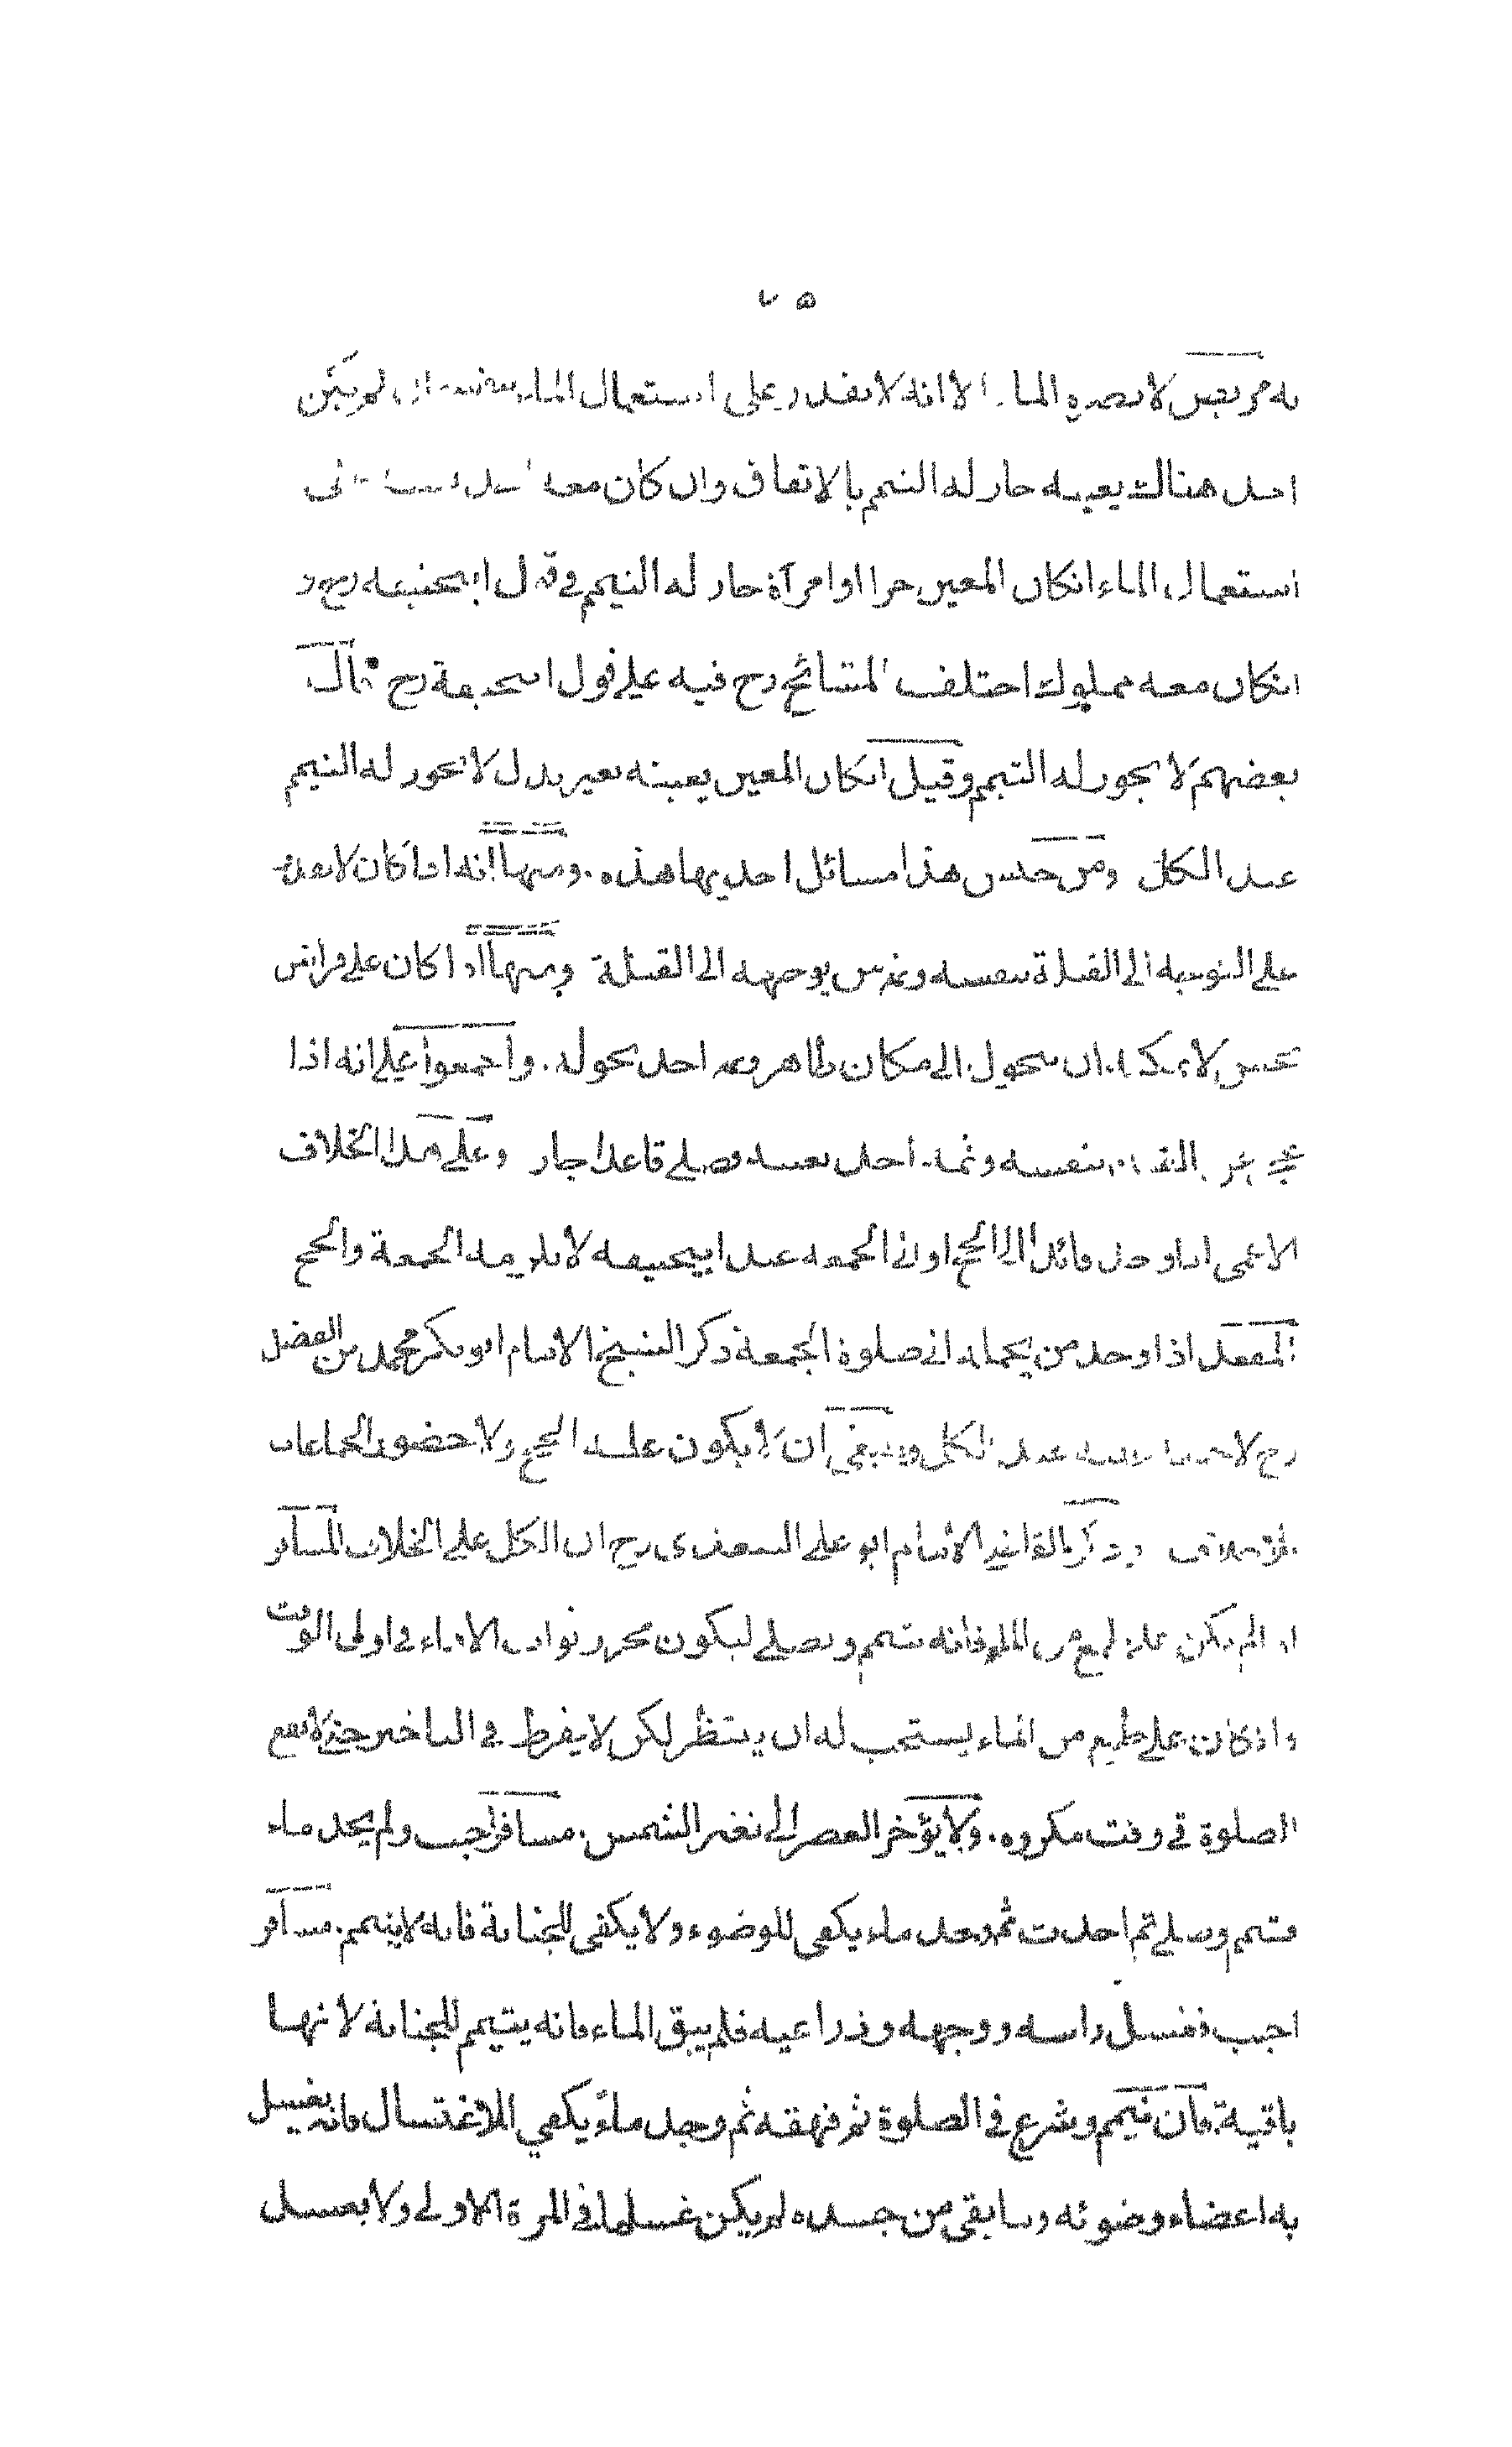 ٧٥
به مريض لا يضره الماء الا انه لا يقدر على استعمال الماء بنفسه ان لم يكن
احد هناك يعينه جاز له التيمم بالاتفاق وان كان معه
استعمال الماء انكان المعين حرا او امرأة جاز له التيمم في قول ابيحنيفه رح و
انكان معه مملوك اختلف المشائخ رح فيه على قول ابيحنيفة رح قال
بعضهم لا يجوز له التيمم وقيل انكان المعين يعينه بغير بدل لا يجوز له التيمم
عند الكل ومن جنس هذا مسائل احديها هذه . ومنها انه اذا كان لا يقدر
على التوجه الى القبلة بنفسه وثمه من يوجهه الى القبلة ومنها اذا كان على فراش
نجس لا يمكنه ان يتحول الى مكان طاهر وثمه احد يحوله . واجمعوا على انه اذا
عجز عن القيام بنفسه وثمه احد يعينه فصلى قاعدا جاز وعلى هذا الخلاف
الاعمى اذا وجد قائدا الى الحج او الى الجمعه عند ابيحنيفه لا يلزمه الجمعة والحج
المقعد اذا وجد من يحمله الى صلوة الجمعة ذكر الشيخ الامام ابو بكر محمد بن الفضل
رح لا عند الكل وينبغي ان لا يكون عليه الحج ولا حضور الجماعات
وذكر القاضي الامام ابو علي السغدي رح ان الكل على الخلاف المسافر
اذا لم يكن على طمع من الماء فانه يتيمم ويصلي ليكون محرزا ثواب الاداء في اول الوقت
واذا كان على طمع من الماء يستحب له ان ينتظر لكن لا يفرط في التاخير حتى لا تقع
الصلوة في وقت مكروه . ولا يؤخر العصر الى تغير الشمس . مسافر اجنب ولم يجد ماء
فتيمم وصلى ثم احدث ثم وجد ماء يكفي للوضوء ولا يكفي للجنابة فانه لا يتيمم . مسافر
اجنب فغسل راسه ووجهه وذراعيه فلم يبق الماء فانه يتيمم للجنابة لانها
باقية . فان تيمم وشرع في الصلوة ثم قهقه ثم وجد ماء يكفي للاغتسال فانه يغسل
به اعضاء وضوئه وما بقي من جسده لم يكن غسلها في المرة الاولى ولا يغسل